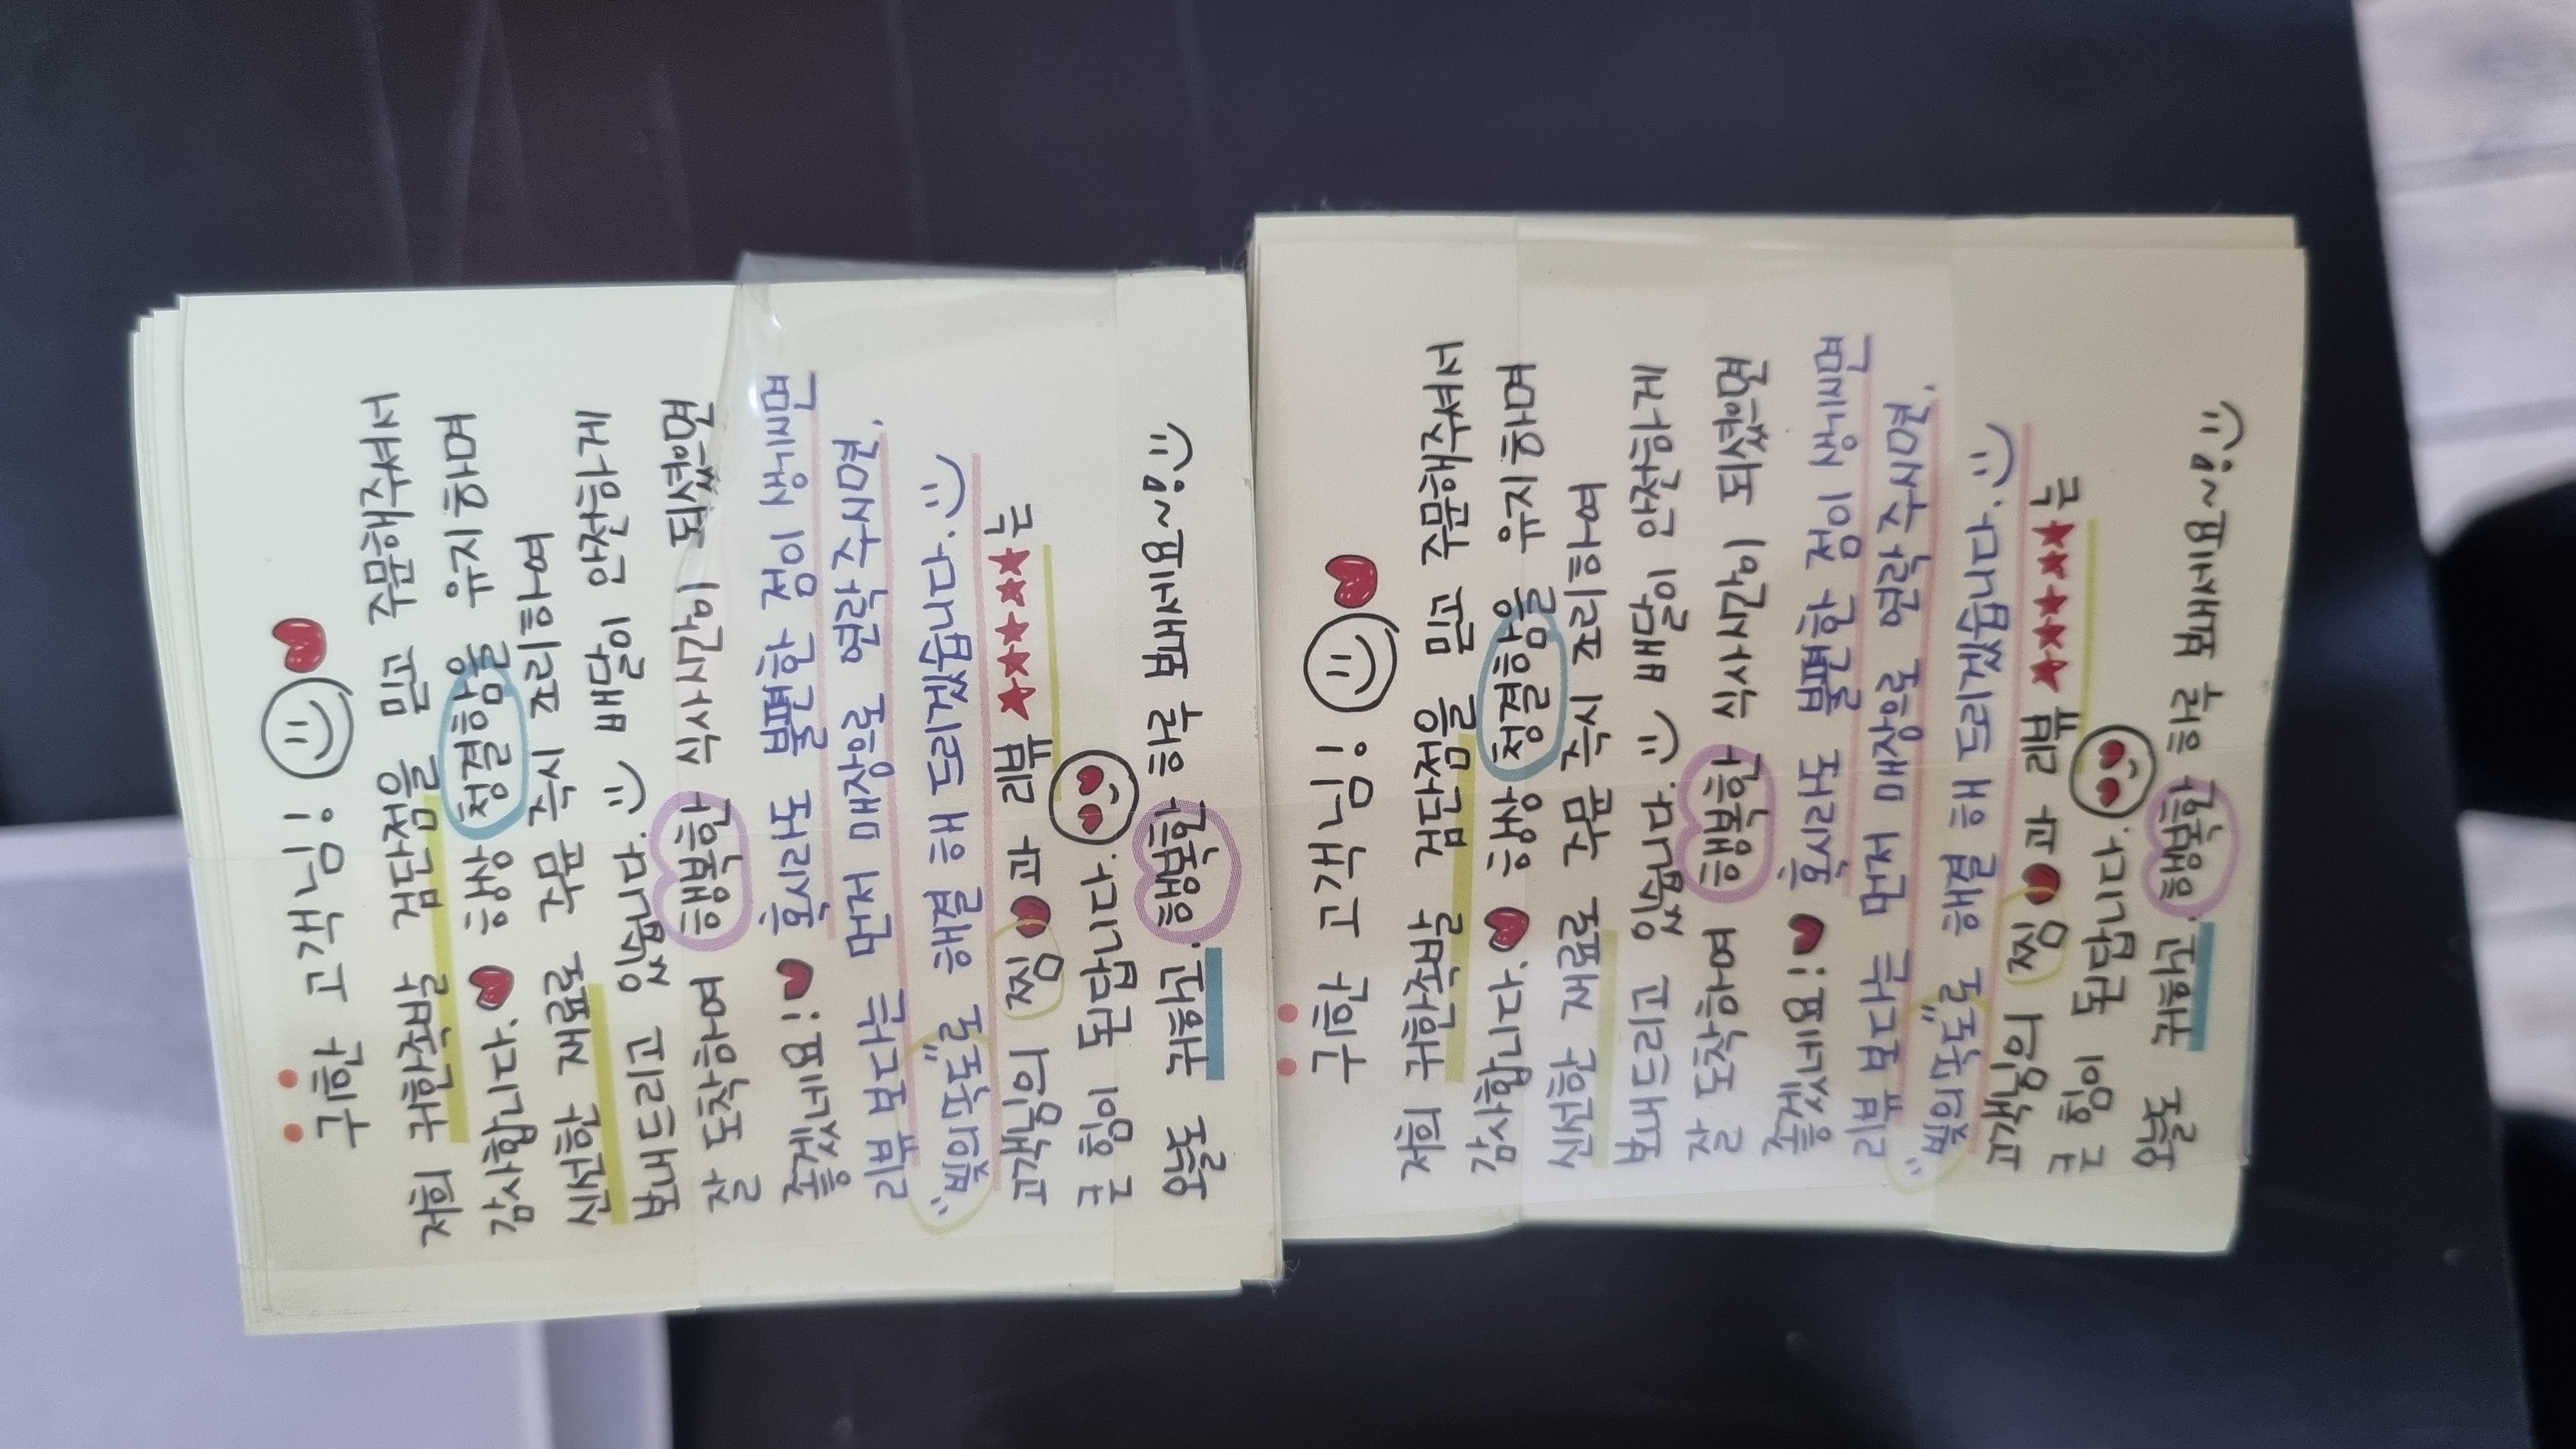 귀한 고객님!
저희 귀한족발 검단점을 믿고 주문해주셔서
감사합니다.♥ 위생 청결함을 유지하며
신선한 재료로 주문 즉시 조리하여
보내드리고 있습니다. 배달 안전하게
잘 도착하여 행복한 식사시간이 되셨으면
좋겠네요!♥ 혹시라도 불편한 점이
리뷰 보다는 먼저 매장으로 연락주시면,
"빛의속도"로 해결해 드리겠습니다.
고객님의 찜♥과 리뷰★★★★★는
큰 힘이 됩니다.
오늘 행복한 하루 보내세요~!
귀한 고객님!
저희 귀한족발 검단점을 믿고 주문해주셔서
감사합니다.♥ 위생 청결함을 유지하며
신선한 재료로 주문 즉시 조리하여
보내드리고 있습니다. 배달 안전하게
잘 도착하여 행복한 식사시간이 되셨으면
좋겠네요!♥ 혹시라도 불편한 점이
리뷰 보다는 먼저 매장으로 연락주시면,
"빛의속도"로 해결해 드리겠습니다.
고객님의 찜♥과 리뷰★★★★★는
큰 힘이 됩니다.
오늘 행복한 하루 보내세요~!